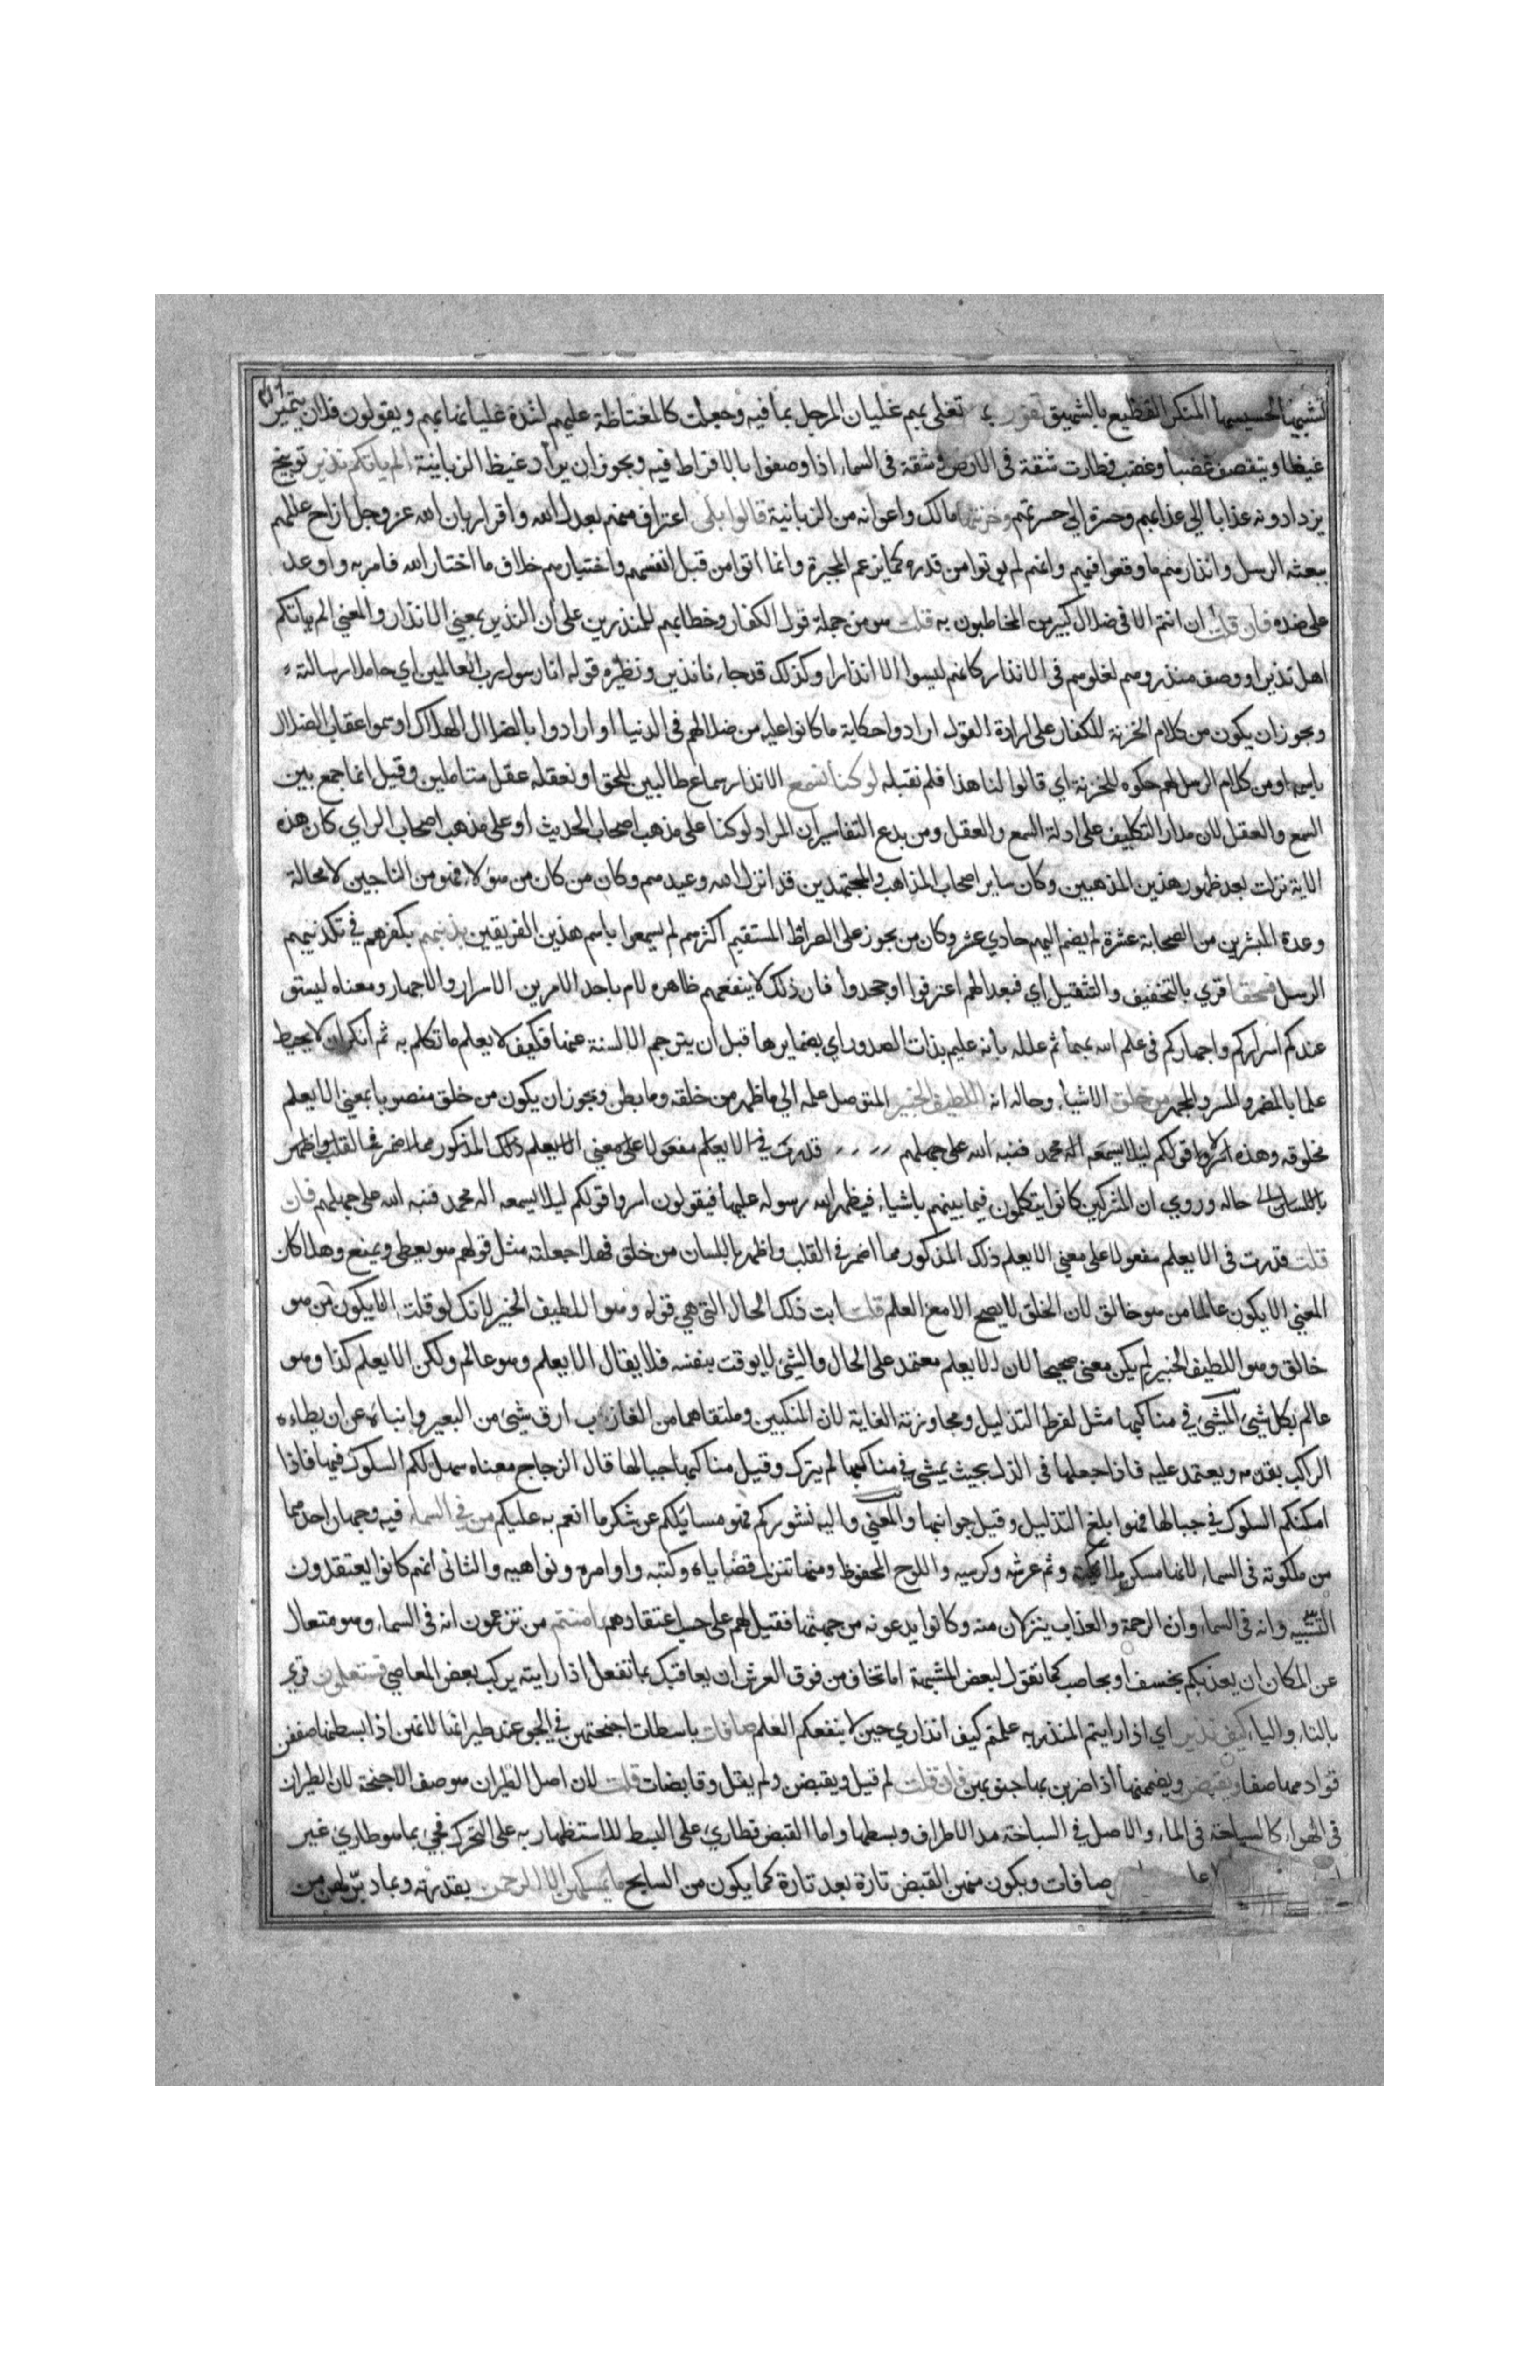 تشبيها لحسيسها المنكر الفظيع بالشهيق تفور تغلي بهم غليان المرجل بما فيه وجعلت كالمغتاظة عليهم لشدة غليانها بهم ويقولون فلان يتميز
غيظا ويتقصف غضبا وغضب فطارت شقة فى الارض وشقة فى السماء اذا وصفوا بالافراط فيه ويجوز ان يراد غيظ الزبانية الم ياتكم نذير توبيخ
يزدادونه عذابا الي عذابهم وحسرة الي حسرتهم وخزنتها مالك واعوانه من الزبانية قالوا بلى اعتراف منهم بعدل الله واقرار بان الله عز وجل ازاح عللهم
ببعثه الرسل وانذارهم ما وقعوا فيهم وانهم لم يوتوا من قدره كما يزعم المجبرة وانما اتوا من قبل انفسهم واختيارهم خلاف ما اختار الله فامر به واوعد
على ضده فان قلت ان انتم الا فى ضلال كبير من المخاطبون به قلت هو من جملة قول الكفار وخطابهم للمنذرين على ان النذير بمعني الانذار والمعني الم ياتكم
اهل نذير او وصف منذروهم لغلوهم فى الانذار كانهم ليسوا الا انذارا وكذلك قد جاءنا نذير ونظيره قوله انا رسول رب العالمين اي حاملا رسالته
ويجوز ان يكون من كلام الخزنة للكفار على ارادة القول ارادوا حكاية ما كانوا عليه من ضلالهم فى الدنيا او ارادوا بالضلال الهلاك او سموا عقاب الضلال
باسمه او من كلام الرسل لهم حكوه للخزنة اي قالوا لنا هذا فلم نقبله لو كنا نسمع الانذار سماع طالبين للحق او نعقله عقل متاملين وقيل انما جمع بين
السمع والعقل لان مدار التكليف على ادلة السمع والعقل ومن بدع التفاسير ان المراد لو كنا على مذهب اصحاب الحديث او على مذهب اصحاب الراي كان هذه
الاية نزلت بعد ظهور هذين المذهبين وكان ساير اصحاب المذاهب والمجتهدين قد انزل الله وعيدهم وكان من كان من هؤلاء فهو من الناجين لا محالة
وعدة المبشرين من الصحابة عشرة لم يضم اليهم حادي عشر وكان من يجوز على الصراط المستقيم اكثرهم لم يسمعوا باسم هذين الفريقين بذنبهم بكفرهم في تكذيبهم
الرسل فسحقا قري بالتخفيف والتثقيل اي فبعدا لهم اعترفوا او جحدوا فان ذلك لا ينفعهم ظاهره الام باحد الامرين الاسرار والاجهار ومعناه ليستو
عندكم اسراركم واجهاركم فى علم الله بهما ثم علله بانه عليم بذات الصدور اي بضمايرها قبل ان يترجم الالسنة عنها فكيف لا يعلم ما تكلم به ثم انكر ان لا يحيط
علما بالمضمر والمسر والمجهر من خلق الاشياء وحاله انه اللطيف الخبير المتوصل علمه الي ما ظهر من خلقه وما بطن ويجوز ان يكون من خلق منصوبا بمعني الا يعلم
مخلوقه وهذه اسروا قولكم ليلا يسمعه اله محمد فنبه الله على جهلهم قدرت في الا يعلم مفعولا على معني الا يعلم ذلك المذكور مما اضمر في القلب واظهر
باللسان حاله وروي ان المشركين كانوا يتكلمون فيما بينهم باشياء فيظهر الله رسوله عليها فيقولون اسروا قولكم ليلا يسمعه اله محمد فنبه الله على جهلهم فان
قلت قدرت فى الا يعلم مفعولا على معني الا يعلم ذلك المذكور مما اضمر في القلب واظهر باللسان من خلق فهلا جعلته مثل قولهم هو يعطي ويمنع وهلا كان
المعني الا يكون عالما من هو خالق لان الخلق لا يصح الا مع العلم قلت ابت ذلك الحال التى هي قوله وهو اللطيف الخبير لانك لو قلت الا يكون من هو
خالق وهو اللطيف الخبير لم يكن معنى صحيحا لان لا يعلم معتمد على الحال والشئ لا يوقت بنفسه فلا يقال الا يعلم وهو عالم ولكن الا يعلم كذا وهو
عالم بكل شئ المشئ في مناكبها مثل لفرط التذليل ومجاوزته الغاية لان المنكبين وملتقاهما من الغارب ارق شئ من البعير وانباه عن ان يطاءه
الراكب بقدمه ويعتمد عليه فاذا جعلها فى الذل بحيث يمشى في مناكبها لم يترك وقيل مناكبها جبالها قال الزجاج معناه سهل لكم السلوك فيها فاذا
امكنكم السلوك في جبالها فهو ابلغ التذليل وقيل جوانبها والمعني واليه نشوركم فهو مسايلكم عن شكر ما انعم به عليكم من في السماء فيه وجهان احدهما
من ملكوته فى السماء لانها مسكن ملائكته وثم عرشه وكرسيه واللوح المحفوظ ومنها تنزل قضاياه وكتبه واوامره ونواهيه والثانى انهم كانوا يعتقدون
التشبيه وانه فى السماء وان الرحمة والعذاب ينزلان منه وكانوا يدعونه من جهتها فقيل لهم على حسب اعتقادهم اامنتم من تزعمون انه فى السماء وهو متعال
عن المكان ان يعذبكم بخسف او بحاصب كما تقول لبعض المشبهة اما تخاف من فوق العرش ان يعاقبك بما تفعل اذا رايته يركب بعض المعاصي فستعلمون قري
بالتاء والياء كيف نذير اي اذا رايتم المنذر به علمتم كيف انذاري حين لا ينفعكم العلم صافات باسطات اجنحتهن في الجو عند طيرانها لانهن اذا بسطنها صففن
قوادمها صفا ويقبضن ويضممنها اذا ضربن بها جنوبهن فان قلت لم قيل ويقبضن ولم يقل وقابضات قلت لان اصل الطيران هو صف الاجنحة لان الطيران
فى الهواء كالسباحة فى الماء والاصل في السباحة مد الاطراف وبسطها واما القبض فطاري على البسط للاستظهار به على التحرك فجي بما هو طاري غير
صافات ويكون منهن القبض تارة بعد تارة كما يكون من السابح ما يمسكهن الا الرحمن بقدرته وبما دبر لهن من